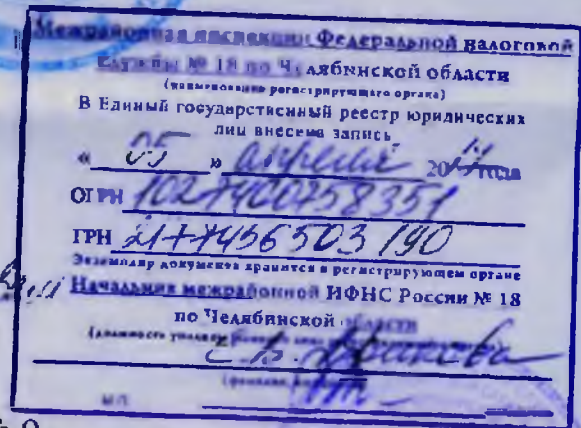 Межрайонная инспекция Федеральной налоговой
Службы № 18 по Челябинской области
(наименование регистрирующего органа)
В Единый государственный реестр юридических
лиц внесена запись
« 05 » апреля 20 года
ОГРН 1027400758351
ГРН 2177456503190
Экземпляр документа хранится в регистрирующем органе
Начальник межрайонной ИФНС России № 18
по Челябинской области
М.П.